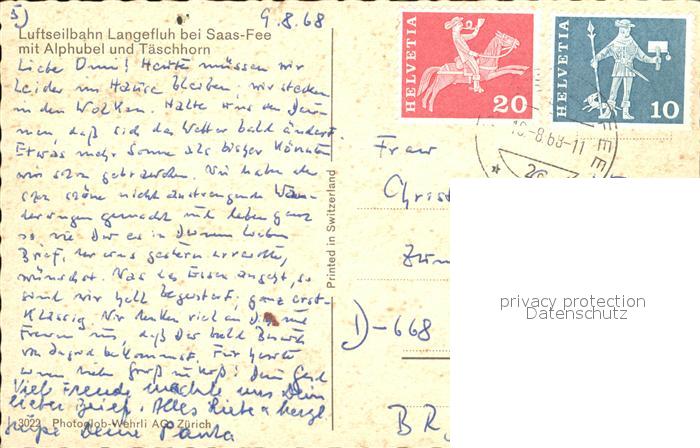 5) 9.8.68
Luftseilbahn Langefluh bei Saas-Fee
mit Alphubel und Täschhorn
Liebe Omi! Heute müssen wir
leider im Hause bleiben; wir stecken
in den Wolken. Halte uns den Dau-
men, daß sich das Wetter bald ändert.
Etwas mehr Sonne als bisher könnten
wir schon gebrauchen. Wir haben aber
schon schöne nicht anstrengende Wan-
derungen gemacht und leben ganz
so, wie Du es in Deinem lieben
Brief, der uns gestern erreichte,
wünschst. Was das Essen angeht, so
sind wir hell begeistert; ganz erst-
klassig. Wir denken viel an Dich und
freuen uns, daß Du bald Besuch
von Dagmar bekommst. Für heute
einen lieben Gruß und Kuß! Dein
Viel Freude machte uns Dein
lieber Brief. Alles Liebe u herzl
Deine
3022 Photoglob-Wehrli AG, Zürich
Printed in Switzerland
HELVETIA 20
HELVETIA 10
-8.68-11
Frau
Christ
D-668
BR
privacy protection
Datenschutz